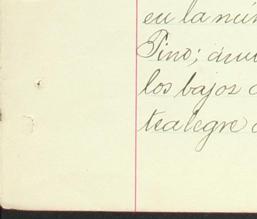 en la nún
Pino; ám
los bajos
tealegre